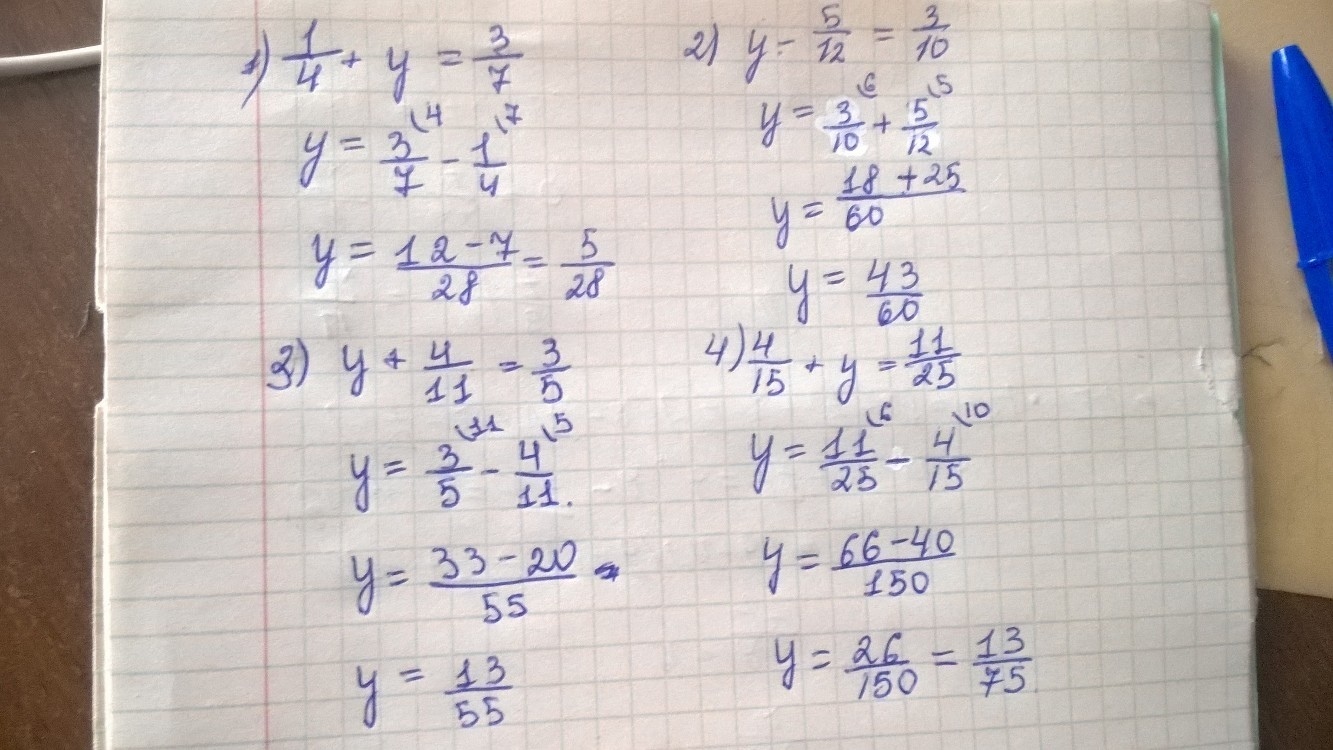 1) 1/4 + y = 3/7
y = 3/7 \4 - 1/4 \7
y = 12-7/28 = 5/28
2) y - 5/12 = 3/10
y = 3/10 \6 + 5/12 \5
y = 18+25/60
y = 43/60
3) y + 4/11 = 3/5
y = 3/5 \11 - 4/11 \5.
y = 33-20/55
y = 13/55
4) 4/15 + y = 11/25
y = 11/25 \6 - 4/15 \10
y = 66-40/150
y = 26/150 = 13/75